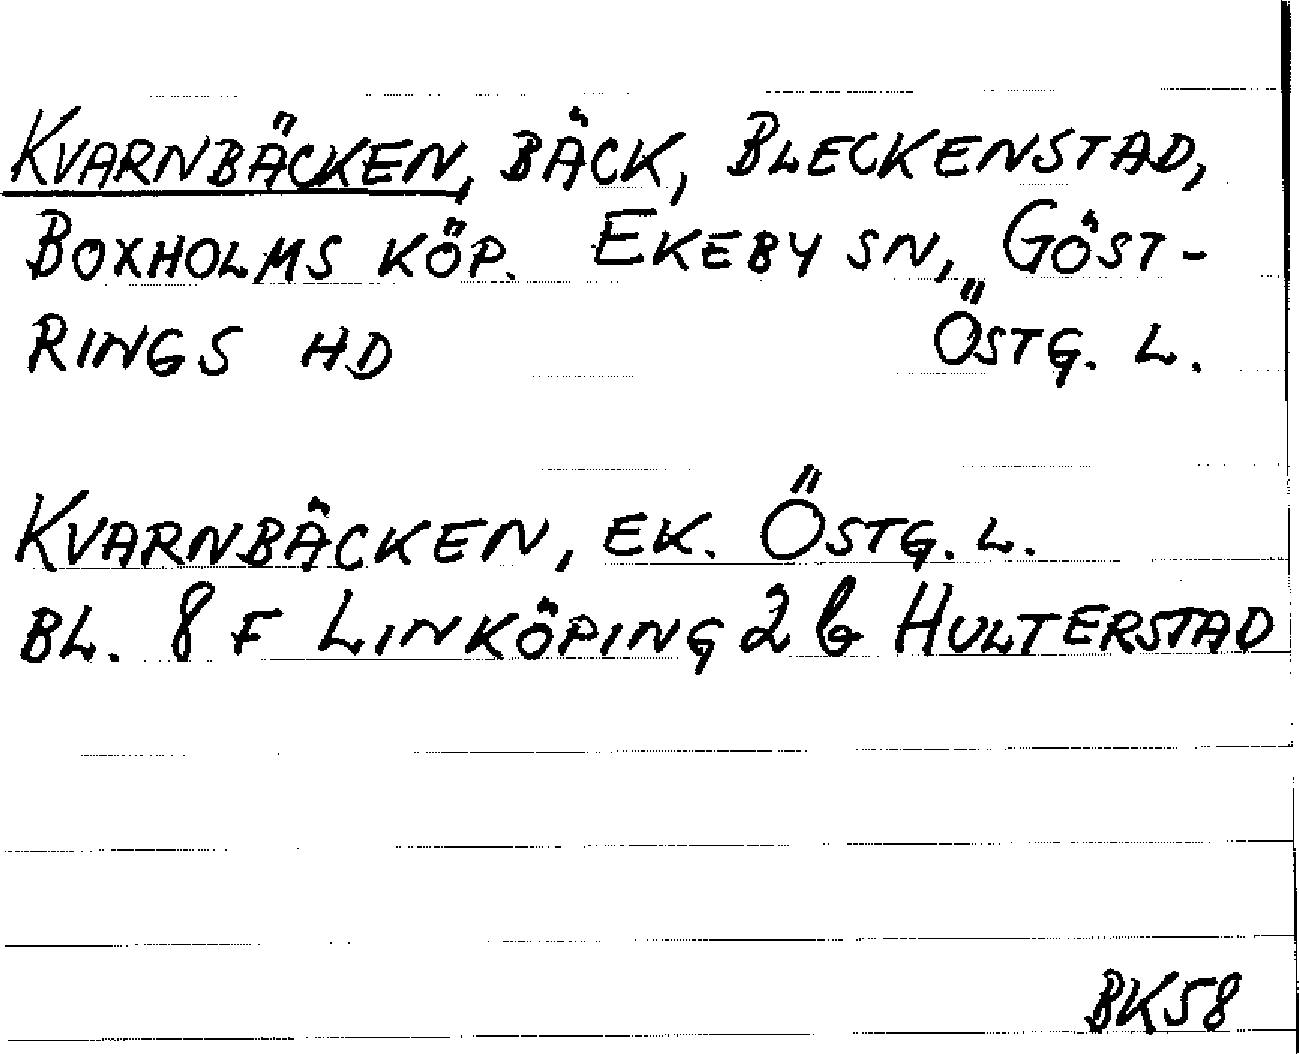 KVARNBÄCKEN, BÄCK, BLECKENSTAD,
BOXHOLMS KÖP. EKEBY SN, GÖST-
RINGS HD ÖSTG. L.
KVARNBÄCKEN, EK. ÖSTG. L.
BL. 8 F LINKÖPING 2 b HULTERSTAD
BK58